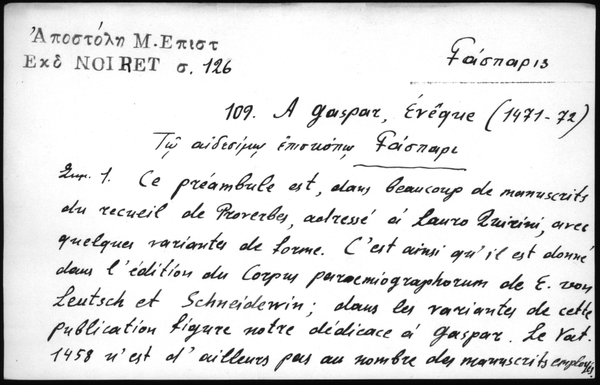 Ἀποστόλη Μ. Επιστ
Εκδ NOIRET σ. 126
Γάσπαρις
109. A Gaspar, Évêque (1471-72)
Τῷ αἰδεσίμῳ ἐπισκόπῳ Γάσπαρι
Σημ. 1. Ce préambule est, dans beaucoup de manuscrits
du recueil de Proverbes, adressé à Lauro Quirini, avec
quelques variantes de forme. C'est ainsi qu'il est donné
dans l'édition du Corpus paroemiographorum de E. von
Leutsch et Schneidewin; dans les variantes de cette
publication figure notre dédicace à Gaspar. Le Vat.
1458 n'est d'ailleurs pas au nombre des manuscrits employés.